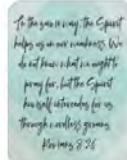 In the same way, the Spirit
helps us in our weakness. We
do not know what we ought to
pray for, but the Spirit
himself intercedes for us
through wordless groans.
Romans 8:26